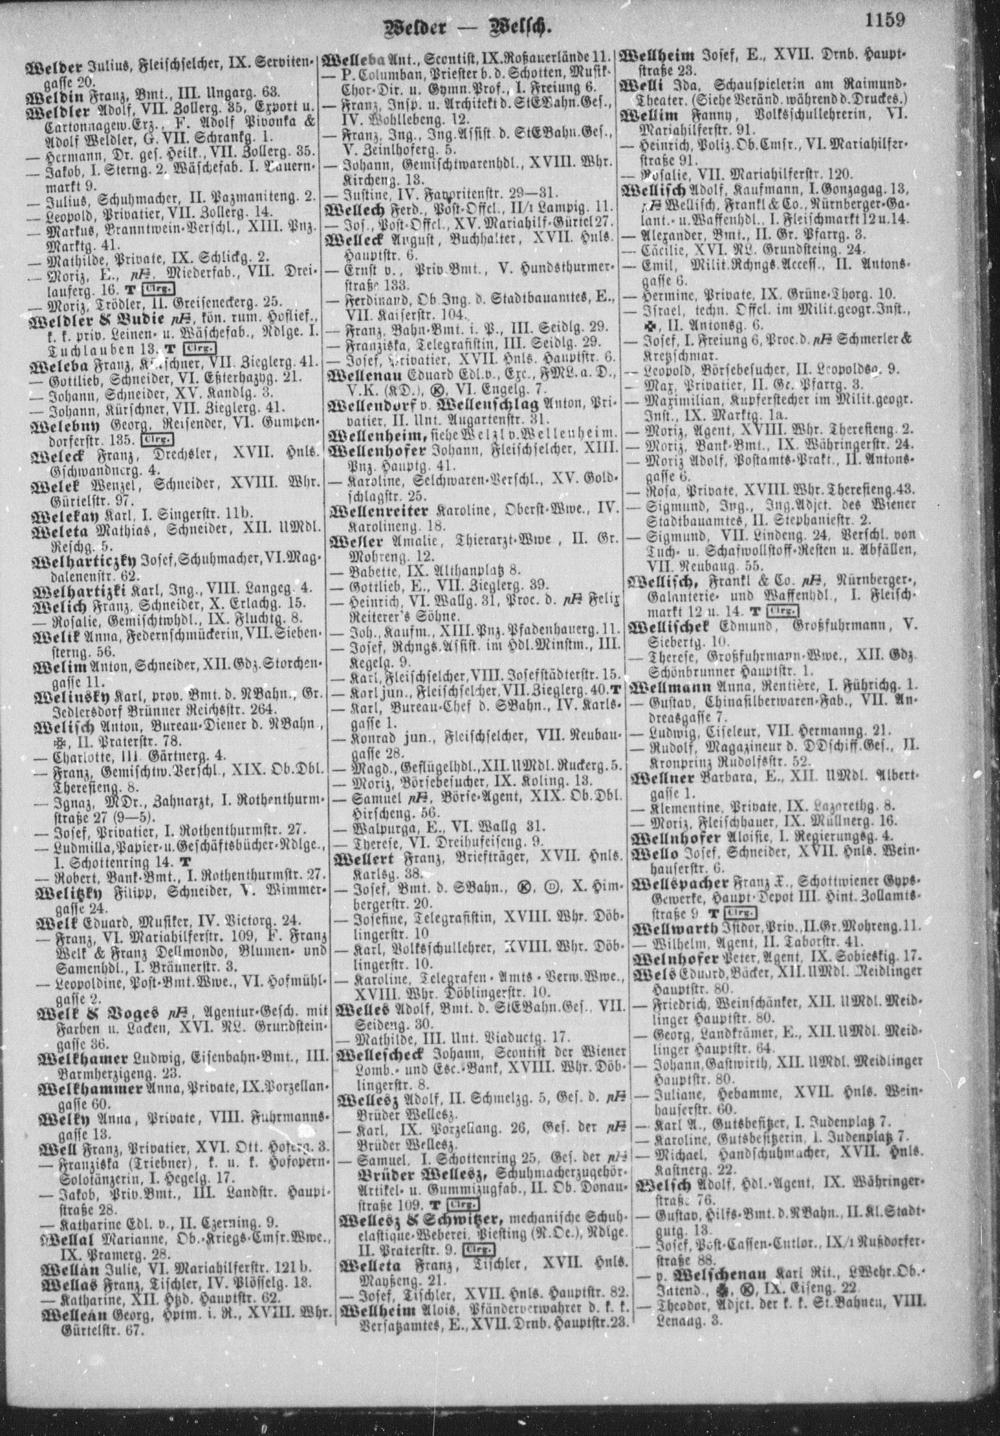 Welder — Welsch.
1159
Welder Julius, Fleischselcher, IX. Serviten-
gasse 20.
Weldin Franz, Bmt., III. Ungarg. 63.
Weldler Adolf, VII. Zollerg. 35, Export u.
Cartonnagew.Erz., F. Adolf Pivonka &
Adolf Weldler, G. VII. Schrankg. 1.
— Hermann, Dr. ges. Heilk., VII. Zollerg. 35.
— Jakob, I. Sterng. 2. Wäschefab. I. Bauern-
markt 9.
— Julius, Schuhmacher, II. Pazmaniteng. 2.
— Leopold, Privatier, VII. Zollerg. 14.
— Markus, Branntwein-Verschl., XIII. Pnz.
Marktg. 41.
— Mathilde, Private, IX. Schlickg. 2.
— Moriz, E., Miederfab., VII. Drei-
lauferg. 16. T Clrg.
— Moriz, Trödler, II. Greiseneckerg. 25.
Weldler & Budie, kön. rum. Hoflief.,
k. k. priv. Leinen- u. Wäschefab., Ndlge. I.
Tuchlauben 13. T Clrg.
Weleba Franz, Kürschner, VII. Zieglerg. 41.
— Gottlieb, Schneider, VI. Eßterhazyg. 21.
— Johann, Schneider, XV. Kandlg. 3.
— Johann, Kürschner, VII. Zieglerg. 41.
Welebny Georg, Reisender, VI. Gumpen-
dorferstr. 135. Clrg.
Weleck Franz, Drechsler, XVII. Hnls.
Gschwandnerg. 4.
Welek Wenzel, Schneider, XVIII. Whr.
Gürtelstr. 97.
Welekay Karl, I. Singerstr. 11b.
Weleta Mathias, Schneider, XII. UMdl.
Reschg. 5.
Welharticzky Josef, Schuhmacher, VI. Mag-
dalenenstr. 62.
Welhartizki Karl, Ing., VIII. Langeg. 4.
Welich Franz, Schneider, X. Erlachg. 15.
— Rosalie, Gemischtwhdl., IX. Fluchtg. 8.
Welik Anna, Federnschmückerin, VII. Sieben-
sterng. 56.
Welim Anton, Schneider, XII. Gdz. Storchen-
gasse 11.
Welinsky Karl, prov. Bmt. d. NBahn., Gr.
Jedlersdorf Brünner Reichsstr. 264.
Welisch Anton, Bureau-Diener d. NBahn.,
II. Praterstr. 78.
— Charlotte, III. Gärtnerg. 4.
— Franz, Gemischtw.Verschl., XIX. Ob.Dbl.
Theresieng. 8.
— Ignaz, MDr., Zahnarzt, I. Rothenthurm-
straße 27 (9—5).
— Josef, Privatier, I. Rothenthurmstr. 27.
— Ludmilla, Papier-u.Geschäftsbücher-Ndlge.,
I. Schottenring 14. T
— Robert, Bank-Bmt., I. Rothenthurmstr. 27.
Welitzky Filipp, Schneider, V. Wimmer-
gasse 24.
Welk Eduard, Musiker, IV. Victorg. 24.
— Franz, VI. Mariahilferstr. 109, F. Franz
Welk & Franz Dellmondo, Blumen- und
Samenhdl., I. Bräunerstr. 3.
— Leopoldine, Post-Bmt.Wwe., VI. Hofmühl-
gasse 2.
Welk & Boges, Agentur-Gesch. mit
Farben u. Lacken, XVI. NL. Grundstein-
gasse 36.
Welkhamer Ludwig, Eisenbahn-Bmt., III.
Barmherzigeng. 23.
Welkhammer Anna, Private, IX. Porzellan-
gasse 60.
Welky Anna, Private, VIII. Fuhrmanns-
gasse 13.
Well Franz, Privatier, XVI. Ott. Hoferg. 3.
— Franziska (Triebner), k. u. k. Hofopern-
Solosänzerin, I. Hegelg. 17.
— Jakob, Priv.Bmt., III. Landstr. Haupt-
straße 28.
— Katharine Edl. v., II. Czerning. 9.
Wellal Marianne, Ob.-Kriegs-Cmsr.Wwe.,
IX. Pramerg. 28.
Wellán Julie, VI. Mariahilferstr. 121b.
Wellas Franz, Tischler, IV. Plösselg. 13.
— Katharine, XII. Hhd. Hauptstr. 62.
Welleán Georg, Hptm. i. R., XVIII. Whr.
Gürtelstr. 67.
Welleba Ant., Scontist, IX. Roßauerlände 11.
— P. Columban, Priester b. d. Schotten, Musik-
Chor-Dir. u. Gymn.Prof., I. Freiung 6.
— Franz, Insp. u. Architekt d. StEBahn.Ges.,
IV. Wohllebeng. 12.
— Franz, Ing., Ing.Assist. d. StEBahn.Ges.,
V. Zeinlhoferg. 5.
— Johann, Gemischtwarenhdl., XVIII. Whr.
Kircheng. 13.
— Justine, IV. Favoritenstr. 29—31.
Wellech Ferd., Post-Offcl., II/1 Lampig. 11.
— Jos., Post-Offcl., XV. Mariahilf-Gürtel 27.
Welleck August, Buchhalter, XVII. Hnls.
Hauptstr. 6.
— Ernst v., Priv.Bmt., V. Hundsthurmer-
straße 133.
— Ferdinand, Ob.Ing. d. Stadtbauamtes, E.,
VII. Kaiserstr. 104.
— Franz, Bahn-Bmt. i. P., III. Seidlg. 29.
— Franziska, Telegrafistin, III. Seidlg. 29.
— Josef, Privatier, XVII. Hnls. Hauptstr. 6.
Wellenau Eduard Edl.v., Exc., FML. a. D.,
V.K. (KD.), K, VI. Engelg. 7.
Wellendorf v. Wellenschlag Anton, Pri-
vatier, II. Unt. Augartenstr. 31.
Wellenheim, siehe Welzl v. Wellenheim.
Wellenhofer Johann, Fleischselcher, XIII.
Pnz. Hauptg. 41.
— Karoline, Selchwaren-Verschl., XV. Gold-
schlagstr. 25.
Wellenreiter Karoline, Oberst-Wwe., IV.
Karolineng. 18.
Weller Amalie, Thierarzt-Wwe., II. Gr.
Mohreng. 12.
— Babette, IX. Althanplatz 8.
— Gottlieb, E., VII. Zieglerg. 39.
— Heinrich, VI. Wallg. 31, Proc. d. Felix
Reiterer's Söhne.
— Joh., Kaufm., XIII. Pnz. Pfadenhauerg. 11.
— Josef, Rchngs.Assist. im Hdl.Minstm., III.
Kegelg. 9.
— Karl, Fleischselcher, VIII. Josefstädterstr. 15.
— Karl jun., Fleischselcher, VII. Zieglerg. 40. T
— Karl, Bureau-Chef d. SBahn., IV. Karls-
gasse 1.
— Konrad jun., Fleischselcher, VII. Neubau-
gasse 28.
— Magd., Geflügelhdl., XII. UMdl. Ruckerg. 5.
— Moriz, Börsebesucher, IX. Koling. 13.
— Samuel, Börse-Agent, XIX. Ob.Dbl.
Hirscheng. 56.
— Walpurga, E., VI. Wallg 31.
— Therese, VI. Dreihufeiseng. 9.
Wellert Franz, Briefträger, XVII. Hnls.
Karlsg. 38.
— Josef, Bmt. d. SBahn., K, D, X. Him-
bergerstr. 20.
— Josefine, Telegrafistin, XVIII. Whr. Döb-
lingerstr. 10.
— Karl, Volksschullehrer, XVIII. Whr. Döb-
lingerstr. 10.
— Karoline, Telegrafen-Amts-Verw.Wwe.,
XVIII. Whr. Döblingerstr. 10.
Welles Adolf, Bmt. d. StEBahn.Ges., VII.
Seideng. 30.
— Mathilde, III. Unt. Viaductg. 17.
Wellescheck Johann, Scontist der Wiener
Lomb.- und Esc.-Bank, XVIII. Whr. Döb-
lingerstr. 8.
Wellesz Adolf, II. Schmelzg. 5, Ges. d.
Brüder Wellesz.
— Karl, IX. Porzellang. 26, Ges. der
Brüder Wellesz.
— Samuel, I. Schottenring 25, Ges. der
Brüder Wellesz, Schuhmacherzugehör-
Artikel- u. Gummizugfab., II. Ob. Donau-
straße 109. T Clrg.
Wellesz & Schwitzer, mechanische Schuh-
elastique-Weberei, Piesting (N.Oe.), Ndlge.
II. Praterstr. 9. Clrg.
Welleta Franz, Tischler, XVII. Hnls.
Mayßeng. 21.
— Josef, Tischler, XVII. Hnls. Hauptstr. 82.
Wellheim Alois, Pfänderverwahrer d. k. k.
Versatzamtes, E., XVII. Drnb. Hauptstr. 23.
Wellheim Josef, E., XVII. Drnb. Haupt-
straße 23.
Welli Ida, Schauspielerin am Raimund-
Theater. (Siehe Veränd. während d. Druckes.)
Wellim Fanny, Volksschullehrerin, VI.
Mariahilferstr. 91.
— Heinrich, Poliz.Ob.Cmsr., VI. Mariahilfer-
straße 91.
— Rosalie, VII. Mariahilferstr. 120.
Wellisch Adolf, Kaufmann, I. Gonzagag. 13,
F. Wellisch, Frankl & Co., Nürnberger-Ga-
lant.- u. Waffenhdl., I. Fleischmarkt 12 u. 14.
— Alexander, Bmt., II. Gr. Pfarrg. 3.
— Cäcilie, XVI. NL. Grundsteing. 24.
— Emil, Milit.Rchngs.Access., II. Antons-
gasse 6.
— Hermine, Private, IX. Grüne-Thorg. 10.
— Israel, techn. Offcl. im Milit.geogr.Inst.,
II. Antonsg. 6.
— Josef, I. Freiung 6, Proc. d. Schmerler &
Kretzschmar.
— Leopold, Börsebesucher, II. Leopoldsg. 9.
— Max, Privatier, II. Gr. Pfarrg. 3.
— Maximilian, Kupferstecher im Milit.geogr.
Inst., IX. Marktg. 1a.
— Moriz, Agent, XVIII. Whr. Theresieng. 2.
— Moriz, Bank-Bmt., IX. Währingerstr. 24.
— Moriz Adolf, Postamts-Prakt., II. Antons-
gasse 6.
— Rosa, Private, XVIII. Whr. Theresieng. 43.
— Sigmund, Ing., Ing.Adjct. des Wiener
Stadtbauamtes, II. Stephaniestr. 2.
— Sigmund, VII. Lindeng. 24, Verschl. von
Tuch- u. Schafwollstoff-Resten u. Abfällen,
VII. Neubaug. 55.
Wellisch, Frankl & Co., Nürnberger-,
Galanterie- und Waffenhdl., I. Fleisch-
markt 12 u. 14. T Clrg.
Wellischek Edmund, Großfuhrmann, V.
Siebertg. 10.
— Therese, Großfuhrmann-Wwe., XII. Gdz.
Schönbrunner Hauptstr. 1.
Wellmann Anna, Rentière, I. Führichg. 1.
— Gustav, Chinasilberwaren-Fab., VII. An-
dreasgasse 7.
— Ludwig, Ciseleur, VII. Hermanng. 21.
— Rudolf, Magazineur d. DDschiff.Ges., II.
Kronprinz Rudolfsstr. 52.
Wellner Barbara, E., XII. UMdl. Albert-
gasse 1.
— Klementine, Private, IX. Lazarethg. 8.
— Moriz, Fleischhauer, IX. Müllnerg. 16.
Wellnhofer Aloisie, I. Regierungsg. 4.
Wello Josef, Schneider, XVII. Hnls. Wein-
hauserstr. 6.
Wellspacher Franz X., Schottwiener Gyps-
Gewerke, Haupt-Depot III. Hint. Zollamts-
straße 9 T Clrg.
Wellwarth Isidor, Priv., II. Gr. Mohreng. 11.
— Wilhelm, Agent, II. Taborstr. 41.
Welnhofer Peter, Agent, IX. Sobieskig. 17.
Wels Eduard, Bäcker, XII. UMdl. Meidlinger
Hauptstr. 80.
— Friedrich, Weinschänker, XII. UMdl. Meid-
linger Hauptstr. 80.
— Georg, Landkrämer, E., XII. UMdl. Meid-
linger Hauptstr. 64.
— Johann, Gastwirth, XII. UMdl. Meidlinger
Hauptstr. 80.
— Juliane, Hebamme, XVII. Hnls. Wein-
hauserstr. 60.
— Karl A., Gutsbesitzer, I. Judenplatz 7.
— Karoline, Gutsbesitzerin, I. Judenplatz 7.
— Michael, Handschuhmacher, XVII. Hnls.
Kastnerg. 22.
Welsch Adolf, Hdl.-Agent, IX. Währinger-
straße 76.
— Gustav, Hilfs-Bmt. d. NBahn., II. Kl. Stadt-
gutg. 13.
— Josef, Post-Cassen-Cntlor., IX/1 Nußdorfer-
straße 88.
— v. Welschenau Karl Rit., LWehr.Ob.-
Intend., K, IX. Eiseng. 22.
— Theodor, Adjct. der k. k. St.Bahnen, VIII.
Lenaug. 3.